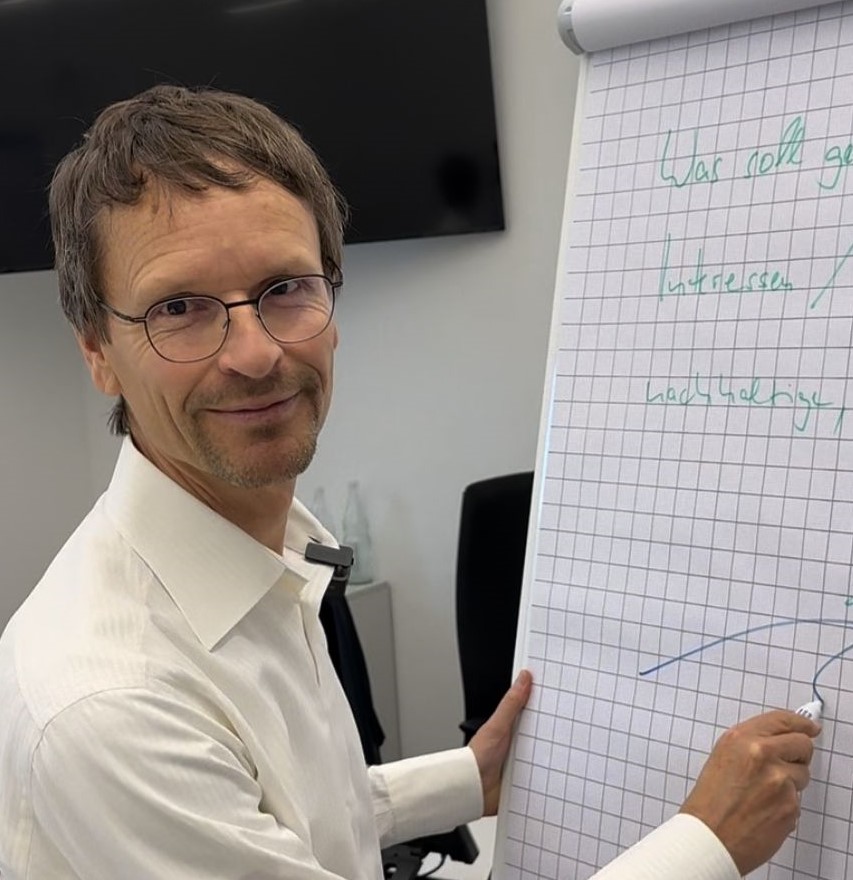 Was soll ge
Interessen /
nachhaltige,